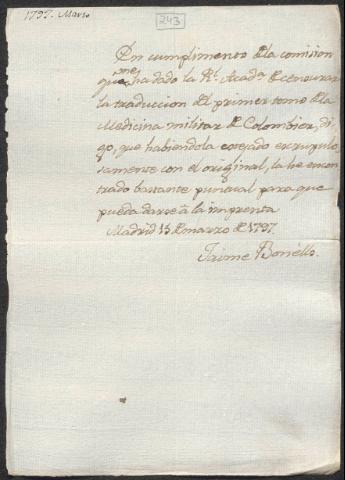 1797. Marzo
243
En cumplimento de la comision
que me ha dado la Rl. Acada. de censurar
la traduccion del primer tomo de la
Medicina militar de Colombier, di-
go, que habiendola cotejado escrupulo-
samente con el original, la he encon-
trado bastante puntual para que
pueda darse â la imprenta
Madrid 15 de marzo de 1797.
Jaime Bonells.